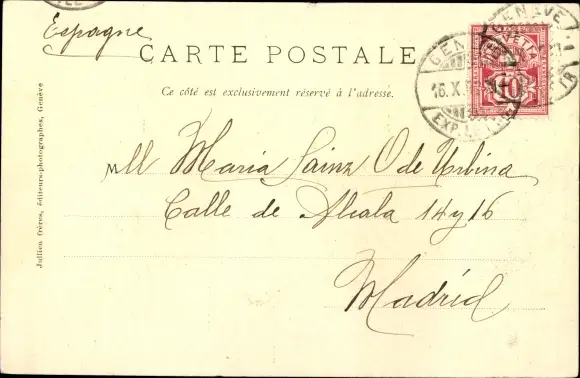 Espagne
CARTE POSTALE
Ce côté est exclusivement réservé à l'adresse.
Mll Maria Sainz O de Urbina
Calle de Alcala 14 y 16
Madrid
Jullien frères, éditeurs-photographes, Genève
GENÈVE
16.X.
EXP. LETTR.
GENÈVE
10